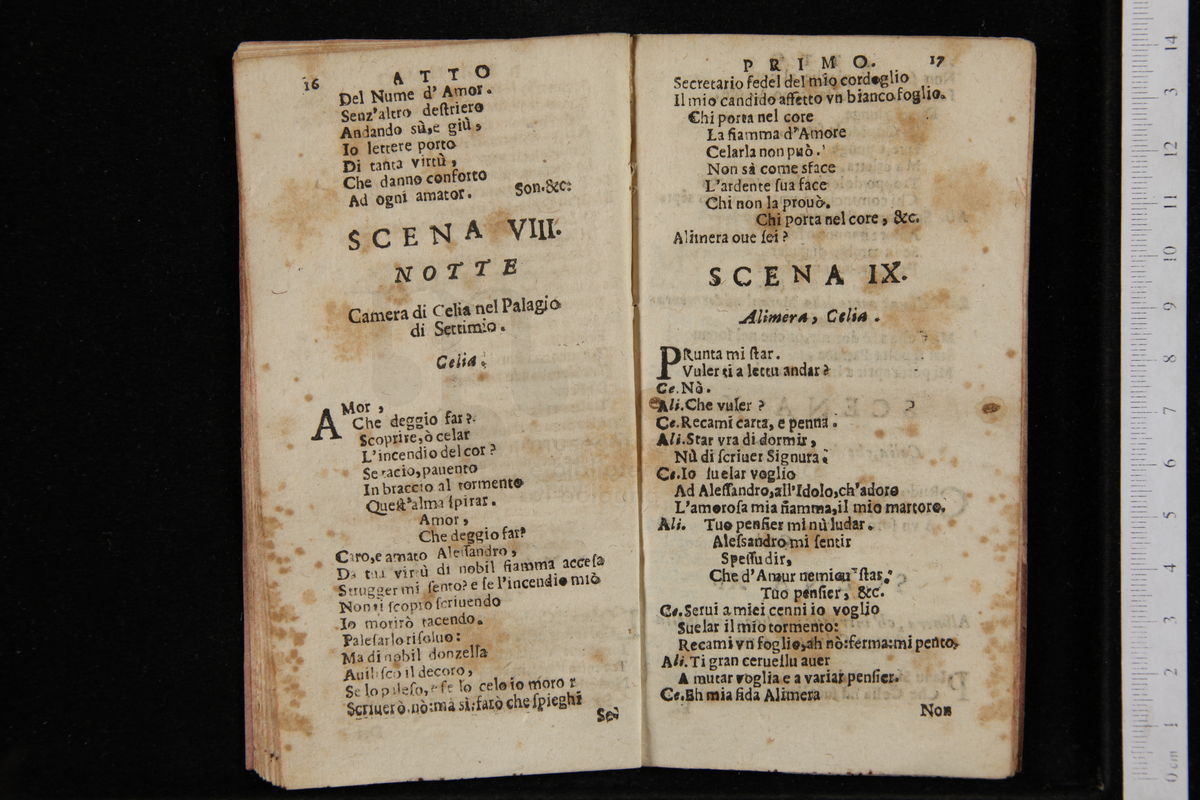 16 ATTO
Del Nume d' Amor.
Senz'altro destriero
Andando sù,e giù,
Io lettere porto
Di tanta virtù,
Che danno conforto
Ad ogni amator. Son.&c.
SCENA VIII.
NOTTE
Camera di Celia nel Palagio
di Settimio.
Celia.
AMor,
Che deggio far?
Scoprire,ò celar
L'incendio del cor?
Se tacio,pauento
In braccio al tormento
Quest'alma spirar.
Amor,
Che deggio far?
Caro,e amato Alessandro,
Da tua virtù di nobil fiamma accesa
Strugger mi sento? e se l'incendio mio
Non ti scopro scriuendo
Io morirò tacendo.
Palesarlo risoluo:
Ma di nobil donzella
Auilisco il decoro,
Se lo paleso, e se lo celo io moro
Scriuerò.nò:ma si:farò che spieghi
Se
PRIMO. 17
Secretario fedel del mio cordoglio
Il mio candido affetto vn bianco foglio.
Chi porta nel core
La fiamma d'Amore
Celarla non può.
Non sà come sface
L'ardente sua face
Chi non la prouò.
Chi porta nel core, &c.
Alimera oue sei?
SCENA IX.
Alimera, Celia.
PRunta mi star.
Vuler ti a lettu andar?
Ce. Nò.
Ali. Che vuler?
Ce. Recami carta, e penna.
Ali. Star vra di dormir,
Nù di scriuer Signura.
Ce. Io suelar voglio
Ad Alessandro,all'Idolo,ch'adoro
L'amorosa mia fiamma,il mio martoro.
Ali. Tuo pensier mi nù ludar.
Alessandro mi sentir
Spessu dir,
Che d'Amur nemicu star.
Tuo pensier, &c.
Ce. Serui a miei cenni io voglio
Suelar il mio tormento:
Recami vn foglio,ah nò:ferma:mi pento,
Ali. Ti gran ceruellu auer
A mutar voglia e a variar pensier.
Ce. Eh mia fida Alimera
Non